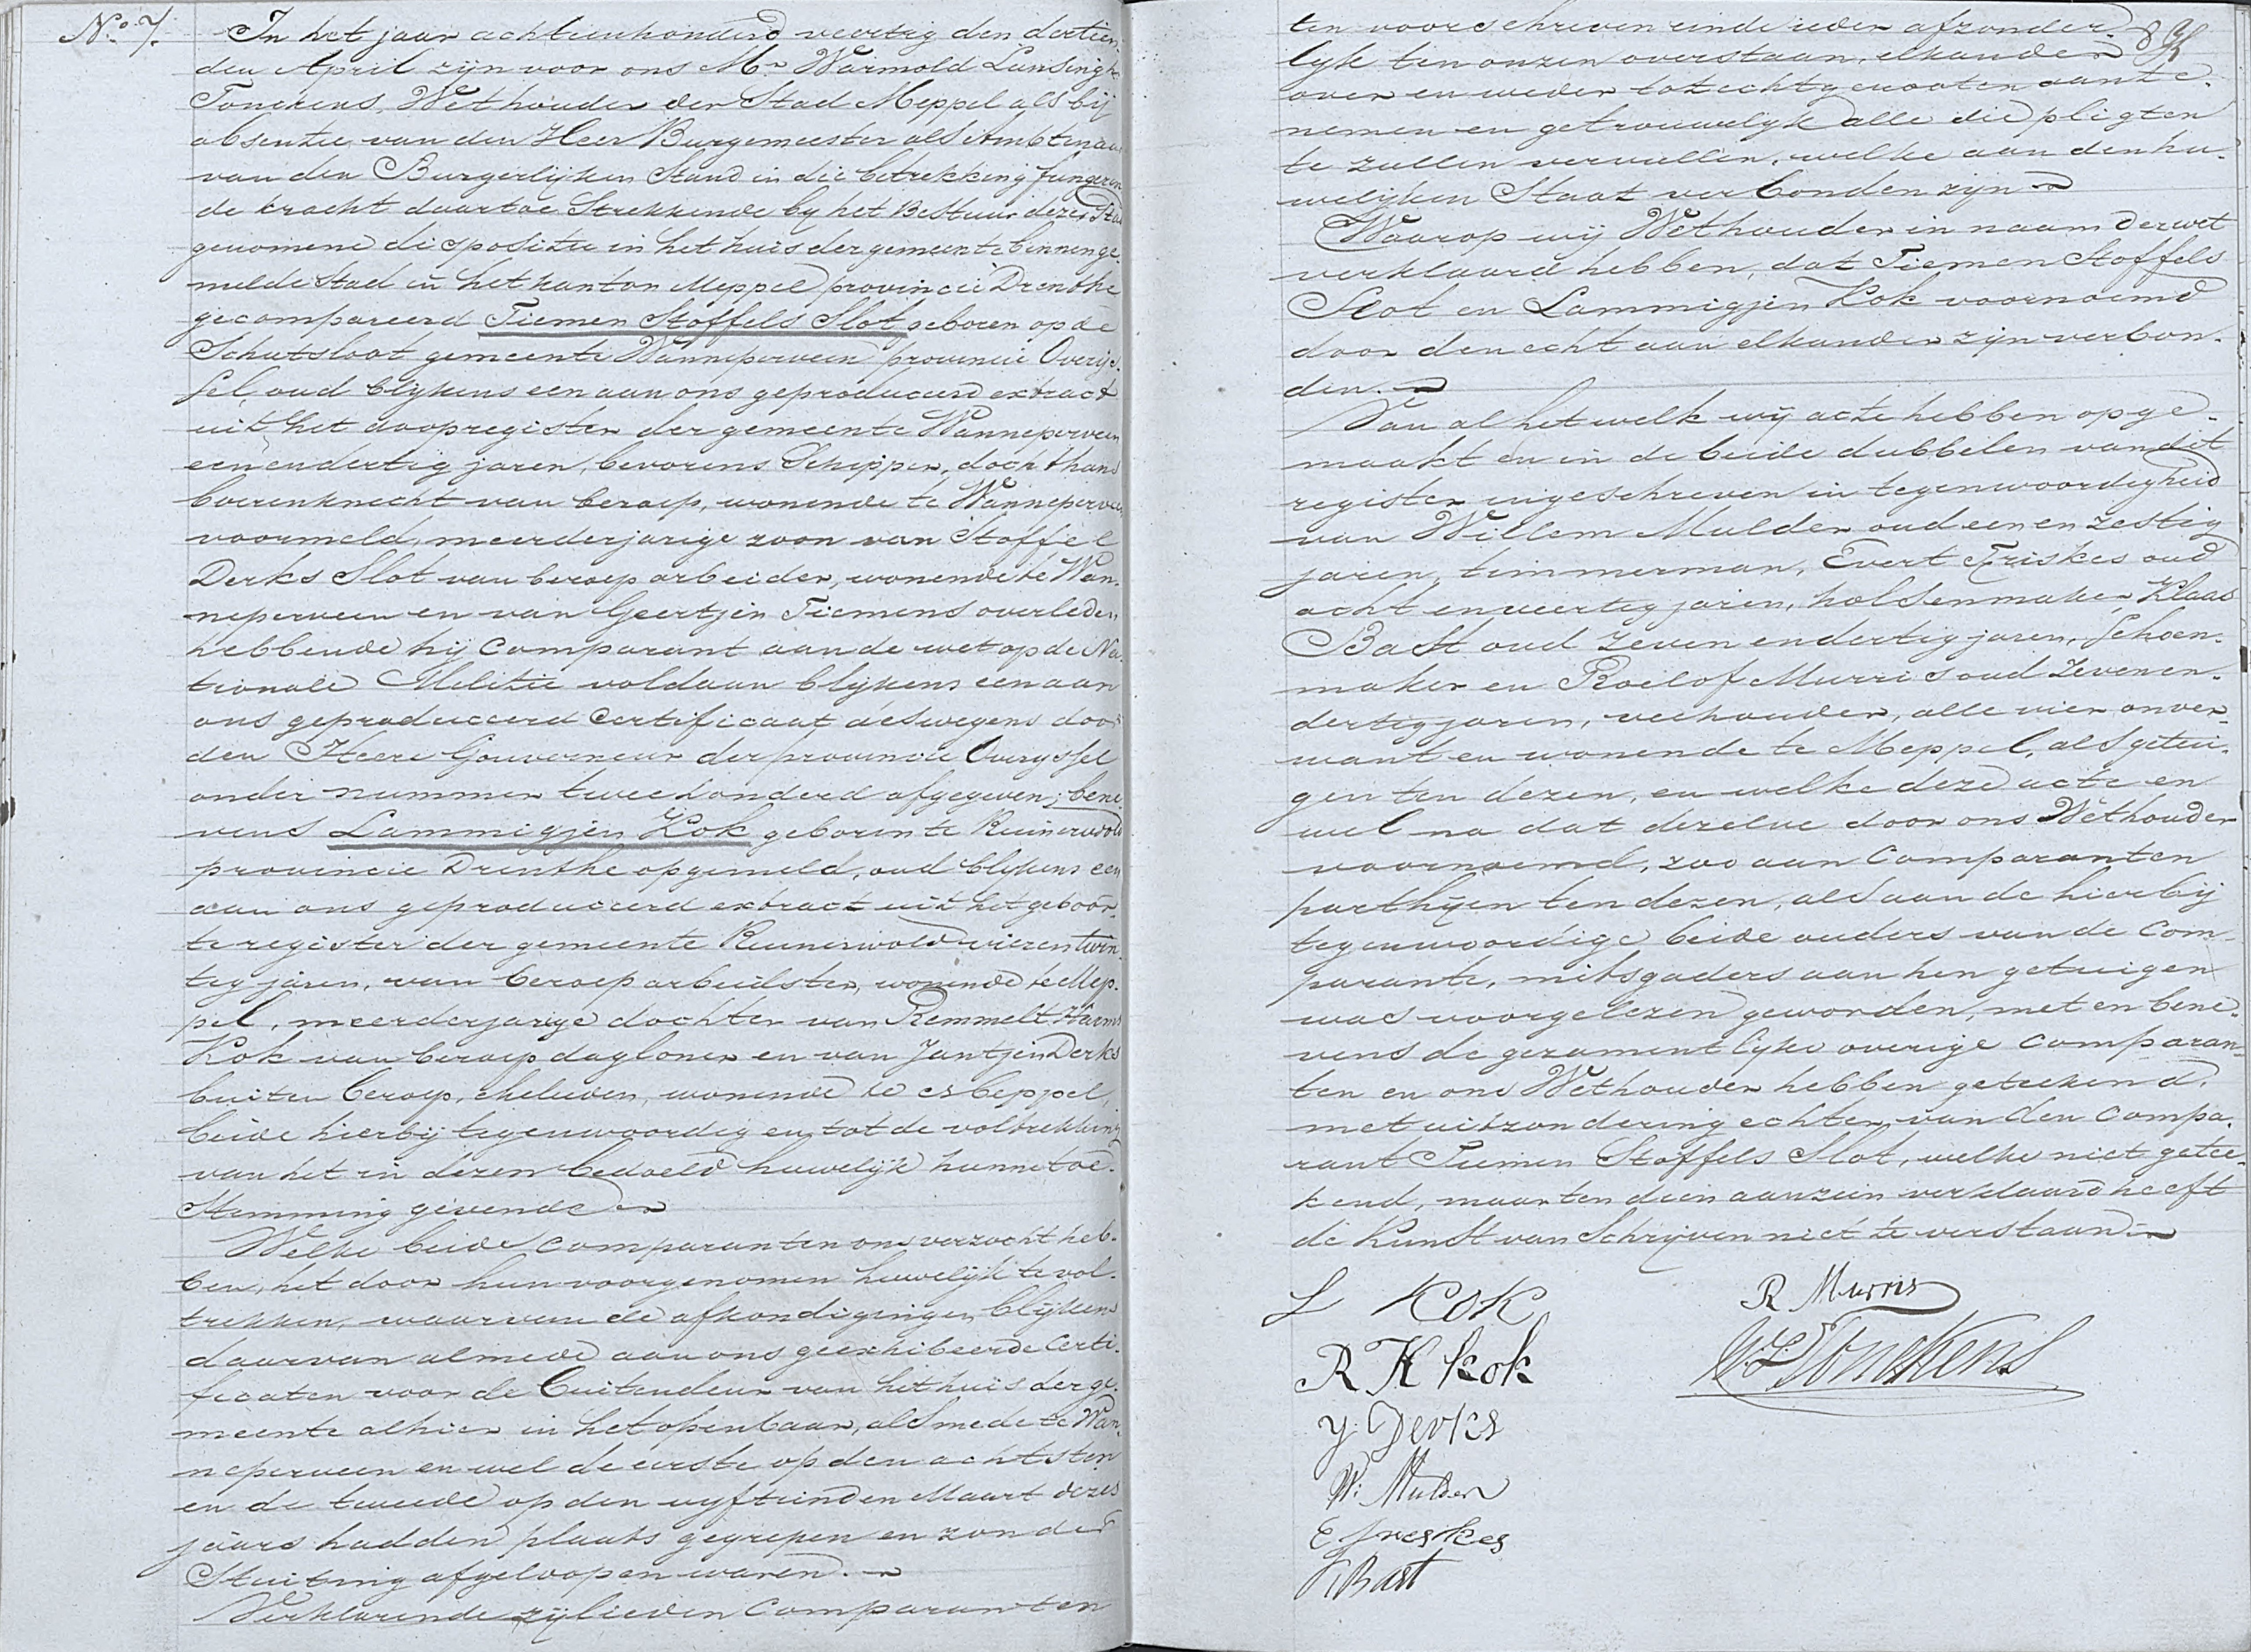 No. 7.
In het jaar achttienhonderd veertig den dertien-
den April zijn voor ons Mr. Warmold Lunsingh
Tonckens, Wethouder der Stad Meppel als bij
absentie van den Heer Burgemeester als Ambtenaar
van den Burgerlijken Stand in die betrekking fungeren
de kracht daartoe Strekkende by het Bestuur dezer Stad
genomene dispositie in het huis der gemeente binnen ge-
melde Stad in het kanton Meppel provincie Drenthe
gecompareerd Tiemen Stoffels Slot geboren op de
Schutsloot gemeente Wanneperveen provincie Overijs-
sel, oud blykens een aan ons geproduceerd extract
uit het doopregister der gemeente Wanneperveen
een en dertig jaren, bevorens Schipper, doch thans
boerenknecht van beroep, wonende te Wanneperveen
voormeld, meerderjarige zoon van Stoffel
Derks Slot van beroep arbeider, wonende te Wan-
neperveen en van Geertjen Tiemens overleden
hebbende hij Comparant aan de wet op de Na-
tionale Militie voldaan blykens een aan
ons geproduceerd Certificaat deswegens door
den Heere Gouverneur der provincie Overyssel
onder nummer tweehonderd afgegeven; bene-
vens Lammigjen Kok geboren te Ruinerwold
provincie Drenthe opgemeld, oud blykens een
aan ons geproduceerd extract uit het geboor-
te register der gemeente Ruinerwold vier en twin-
tig jaren, van beroep arbeidster, wonende te Mep-
pel, meerderjarige dochter van Remmelt Harms
Kok van beroep dagloner en van Jantjen Derks
buiten beroep, ehelieden, wonende te Meppel,
beide hierbij tegenwoordig en tot de voltrekking
van het in dezen bedoeld huwelijk hunne toe-
Stemming gevende
Welke beide Comparanten ons verzocht heb-
ben, het door hun voorgenomen huwelijk te vol-
trekken, waarvan de afkondigingen blijkens
daarvan almede aan ons geexhibeerde Certi-
ficaten voor de buitendeur van het huis der ge-
meente alhier in het openbaar, alsmede te Wan-
neperveen en wel de eerste op den achtsten
en de tweede op den vyftienden Maart dezes
jaars hadden plaats gegrepen en zonder
Stuiting afgeloopen waren.
Verklarende zijlieden Comparanten
ten voorschreven einde ieder afzonder-
lyk ten onzen overstaan, elkander
over en weder tot echtgenooten aan te
nemen en getrouwelyk alle die pligten
te zullen vervullen, welke aan den hu-
welijken Staat verbonden zijn
Waarop wij Wethouder in naam der wet
verklaard hebben, dat Tiemen Stoffels
Slot en Lammigjen Kok voornoemd
door den echt aan elkander zyn verbon-
den.
Van al hetwelk wij acte hebben opge-
maakt en in de beide dubbelen van dit
register ingeschreven in tegenwoordigheid
van Willem Mulder oud een en zestig
jaren, timmerman, Evert Friskes oud
acht en veertig jaren, holsenmaker, Klaas
Bast oud zeven en dertig jaren, Schoen-
maker en Roelof Murris oud zeven en
dertig jaren, veehouder, alle vier onver-
want en wonende te Meppel, als getui-
gen ten dezen, en welke deze acte en
wel na dat dezelve door ons Wethouder
voornoemd, zoo aan Comparanten
parthijen ten dezen, als aan de hierbij
tegenwoordige beide ouders van de Com-
parante, mitsgaders aan hen getuigen
was voorgelezen geworden, met en bene-
vens de gezamentlyke overige Comparan-
ten en ons Wethouder hebben geteekend.
met uitzondering echter van den Compa-
rant Tiemen Stoffels Slot, welke niet getee-
kend, maar ten dien aanzien verklaard heeft
de Kunst van Schrijven niet te verstaan.
L Kok
R H kok
J Derks
W: Mulder
E Freskes
K Bast
R Murris
W L Tonckens